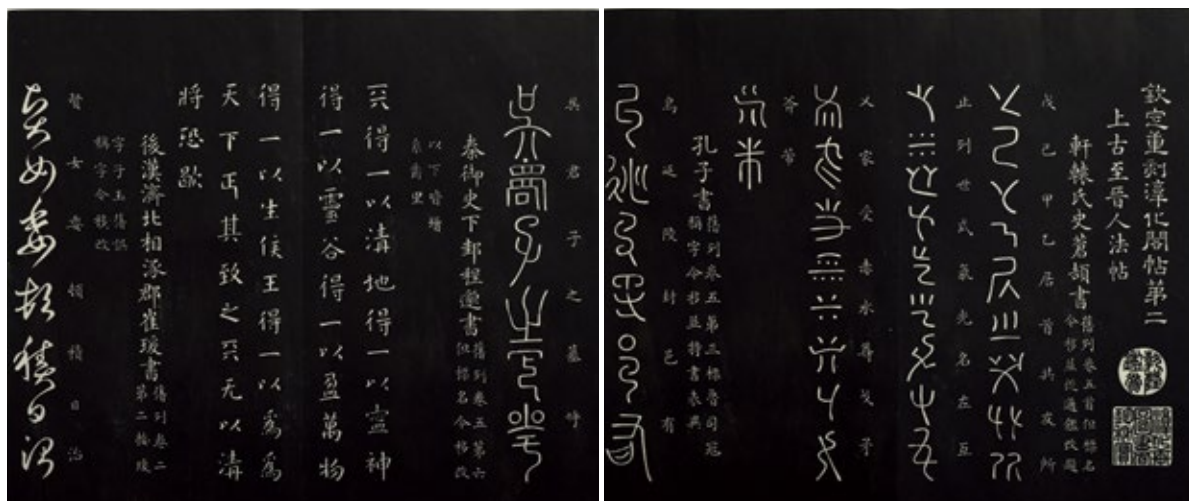 欽定重刻淳化閣帖第二
上古至晉人法帖
軒轅氏史蒼頡書
舊列卷五首但標名
今移並從通鑑改題
戊己甲乙居首共友所
止列世式氣光名左互
乂家受赤水尊戈矛
斧芾
孔子書
舊列卷五第三標魯司寇
稱字今移並特書表異
烏延陵封邑有
吳君子之墓嘑
秦御史下邽程邈書
舊列卷五第六
但標名今移改
以下皆增
系爵里
天得一以清地得一以靈神
得一以靈谷得一以盈萬物
得一以生侯王得一以為
天下正其致之天无以清
將恐歇
後漢濟北相涿郡崔瑗書
舊列卷二
第二
字子玉舊誤
稱字今核改
賢女委頓積日治